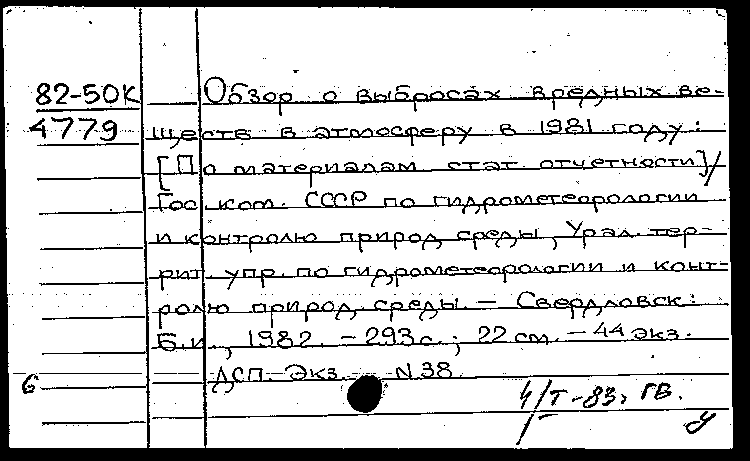 82-50К Обзор о выбросах вредных ве-
4779 ществ в атмосферу в 1981 году:
[По материалам стат. отчетности]/
Гос. ком. СССР по гидрометеорологии
и контролю природ. среды, Урал. тер-
рит. упр. по гидрометеорологии и конт-
ролю природ. среды. — Свердловск:
Б.и., 1982. — 293 с.; 22 см. — 44 экз.
ДСП. Экз. N 38
6
4/Т-83. ГВ.
У